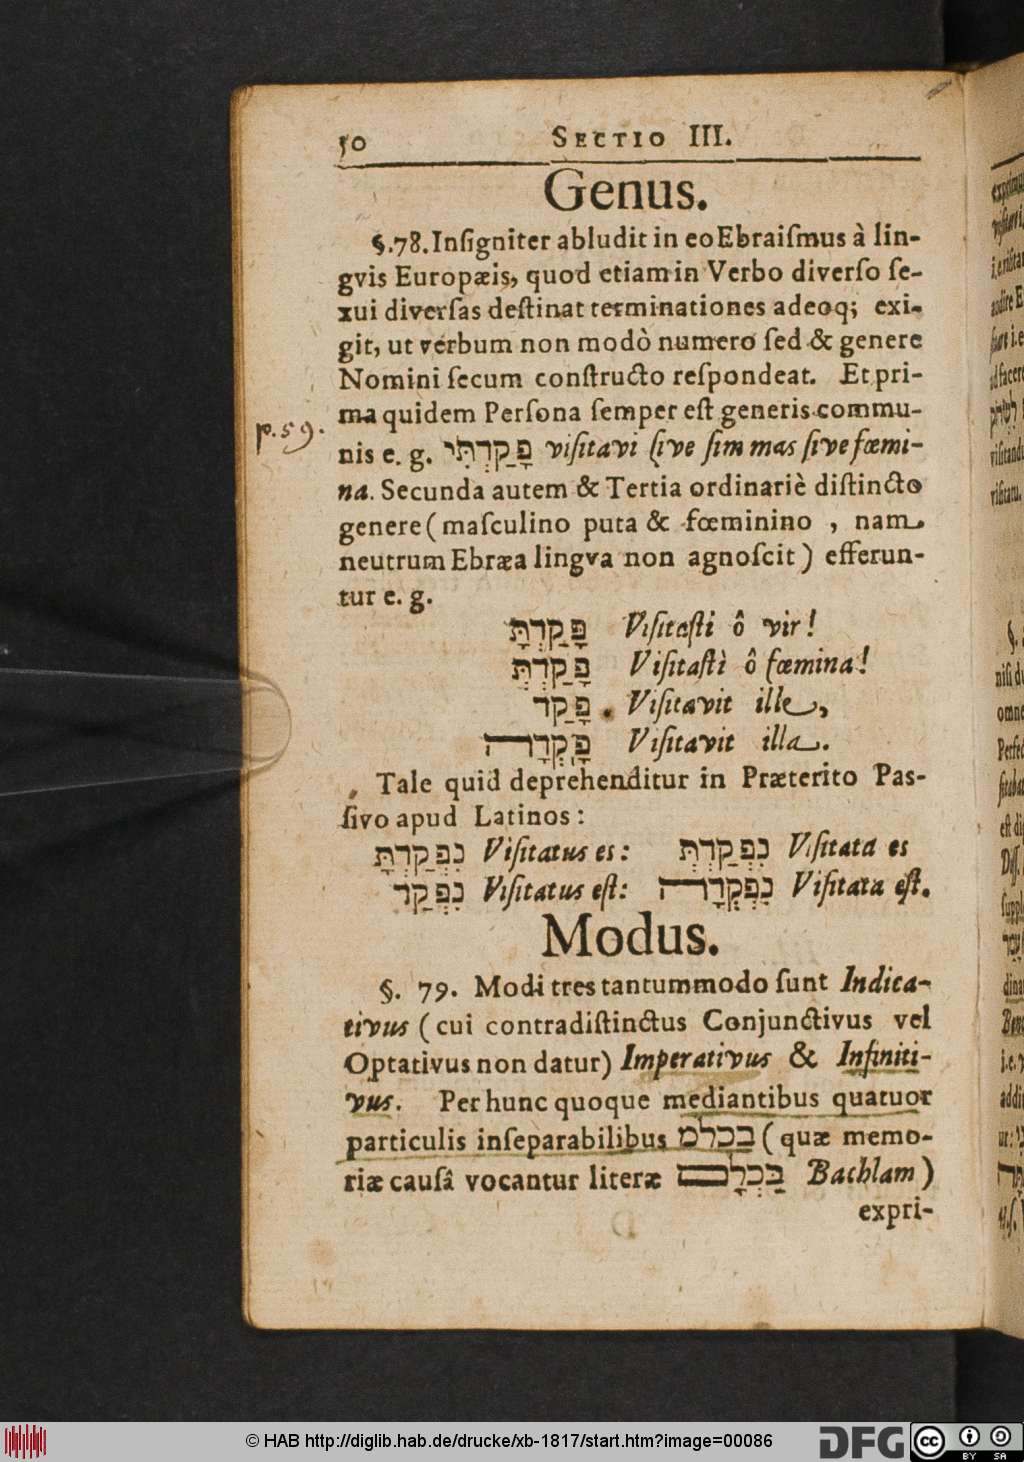 50 SECTIO III.
Genus.
§.78. Inſigniter abludit in eo Ebraiſmus à lin-
gvis Europæis, quod etiam in Verbo diverſo ſe-
xui diverſas deſtinat terminationes adeoq; exi-
git, ut verbum non modò numero ſed & genere
Nomini ſecum conſtructo reſpondeat. Et pri-
ma quidem Perſona ſemper eſt generis commu-
p. 59.
nis e. g. פָּקַדְתִּי viſitavi ſive ſim mas ſive fœmi-
na. Secunda autem & Tertia ordinariè diſtincto
genere (maſculino puta & fœminino , nam
neutrum Ebræa lingva non agnoſcit) efferun-
tur e. g.
פָּקַדְתָּ Viſitaſti ô vir!
פָּקַדְתְּ Viſitaſtì ô fœmina!
פָּקַד. Viſitavit ille,
פָּקְדָה Viſitavit illa.
Tale quid deprehenditur in Præterito Paſ-
ſivo apud Latinos:
נִפְקַדְתָּ Viſitatus es: נִפְקַדְתְּ Viſitata es
נִפְקַד Viſitatus eſt: נִפְקְדָה Viſitata eſt.
Modus.
§. 79. Modi tres tantummodo ſunt Indica-
tivus (cui contradiſtinctus Conjunctivus vel
Optativus non datur) Imperativus & Infiniti-
vus. Per hunc quoque mediantibus quatuor
particulis inſeparabilibus בכלמ (quæ memo-
riæ cauſâ vocantur literæ בַּכְלָם Bachlam)
expri-
© HAB http://diglib.hab.de/drucke/xb-1817/start.htm?image=00086
DFG
cc
BY SA